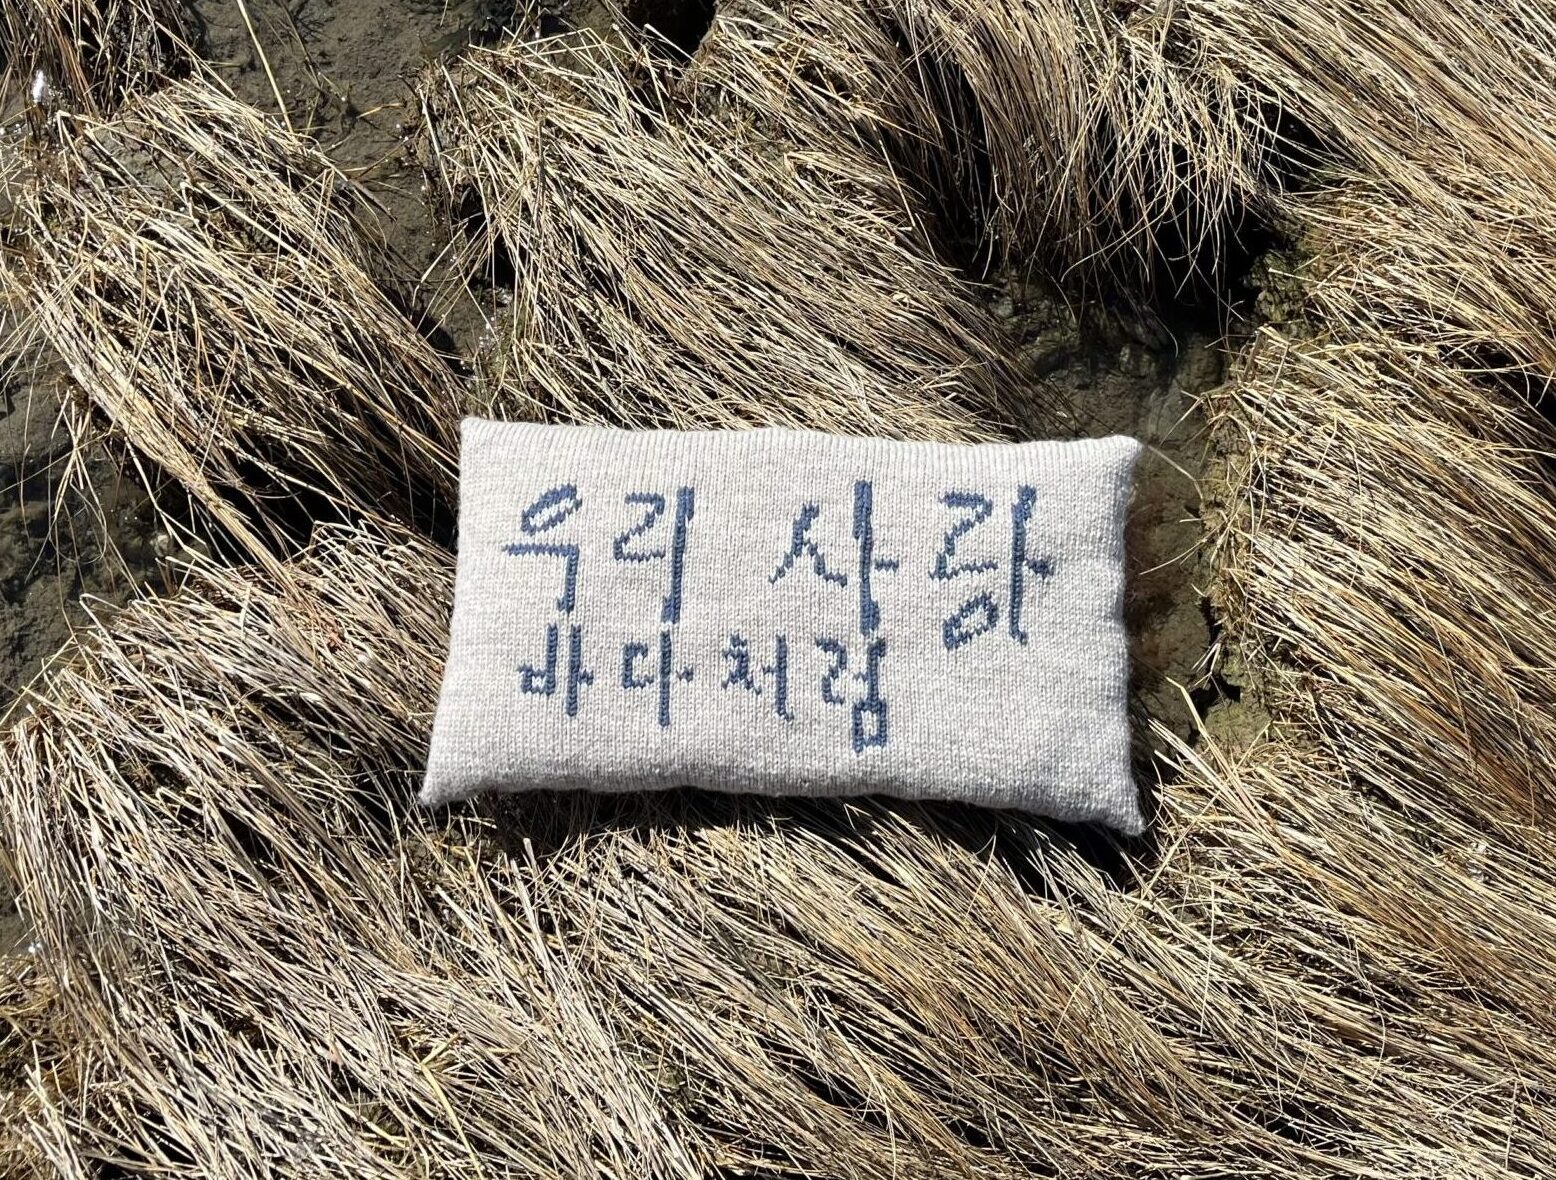 우리 사랑
바다처럼